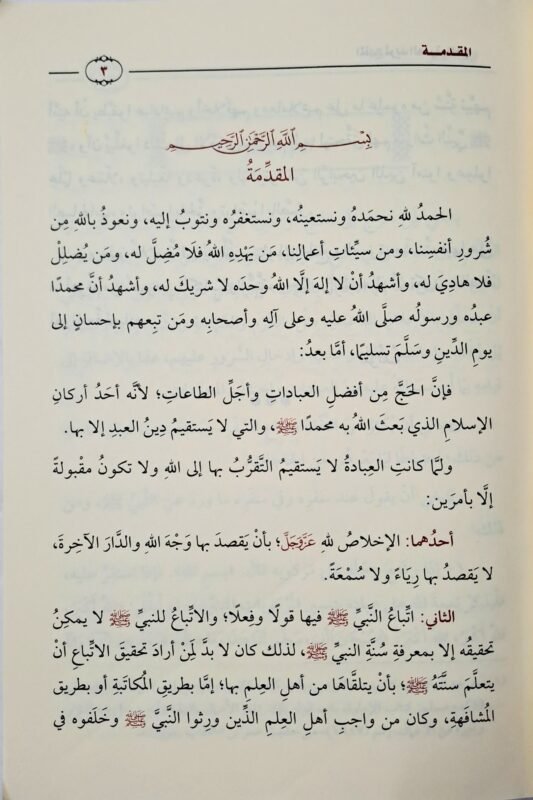 المقدمـــة
٣
بِسْـــمِ اللهِ الرَّحْمٰنِ الرَّحِيـــمِ
المقدِّمَةُ
الحمدُ للهِ نحمَدُه ونستعينُه، ونستغفرُه ونتوبُ إليه، ونعوذُ باللهِ مِن
شُرورِ أنفسِنا، ومن سيِّئاتِ أعمالِنا، مَن يَهْدِهِ اللهُ فلَا مُضِلَّ له، ومَن يُضلِلْ
فلا هاديَ له، وأشهدُ أنْ لا إلهَ إلَّا اللهُ وحدَه لا شريكَ له، وأشهدُ أنَّ محمدًا
عبدُه ورسولُه صلَّى اللهُ عليه وعلى آلِه وأصحابِه ومَن تبِعهم بإحسانٍ إلى
يومِ الدِّينِ وسَلَّمَ تسليمًا، أمَّا بعدُ:
فإنَّ الحَجَّ مِن أفضلِ العباداتِ وأجَلِّ الطاعاتِ؛ لأنَّه أحَدُ أركانِ
الإسلامِ الذي بَعثَ اللهُ به محمدًا ﷺ، والتي لا يَستقيمُ دِينُ العبدِ إلا بها.
ولمَّا كانت العِبادةُ لا يَستقيمُ التَّقرُّبُ بها إلى اللهِ ولا تكونُ مقْبولةً
إلَّا بأمرَينِ:
أحدُهما: الإخلاصُ للهِ عَزَّوَجَلَّ؛ بأنْ يَقصدَ بها وَجْهَ اللهِ والدَّارَ الآخِرةَ،
لا يَقصدُ بها رِيَاءً ولا سُمْعَةً.
الثاني: اتِّباعُ النَّبيِّ ﷺ فيها قولًا وفِعلًا؛ والاتِّباعُ للنبيِّ ﷺ لا يمكِنُ
تحقيقُه إلا بمعرفةِ سُنَّةِ النبيِّ ﷺ، لذلك كان لا بدَّ لِمَنْ أرادَ تحقيقَ الاتِّباعِ أنْ
يتعلَّمَ سنَّتَهُ ﷺ؛ بأنْ يتلقَّاها من أهلِ العِلمِ بها؛ إمَّا بطريقِ المُكاتَبةِ أو بطريقِ
المُشافَهةِ، وكان من واجبِ أهلِ العِلمِ الذِّين ورِثوا النَّبيَّ ﷺ وخَلَفوه في